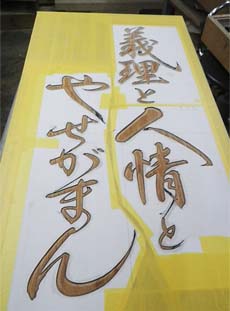 義理と
人情と
やせがまん